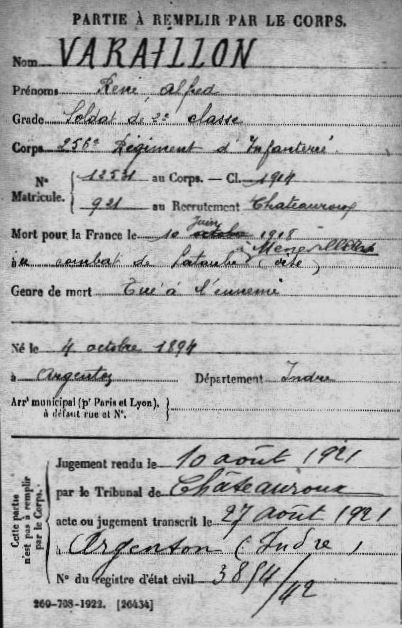 PARTIE À REMPLIR PAR LE CORPS.
Nom VARAILLON
Prénoms René, Alfred
Grade Soldat de 2e classe
Corps 256e Régiment d'Infanterie
N° Matricule. { 12531 au Corps. — Cl. 1914
921 au Recrutement Chateauroux
Juin
Mort pour la France le 10 octobre 1918
à au combat de (Oise)
Genre de mort Tué à l'ennemi
Né le 4 octobre 1894
à Argenton Département Indre
Arrt municipal (pr Paris et Lyon), à défaut rue et N°. }
Cette partie n'est pas à remplir par le Corps.
Jugement rendu le 10 août 1921
par le Tribunal de Châteauroux
acte ou jugement transcrit le 27 août 1921
à Argenton (Indre)
N° du registre d'état civil 3854/42
269-708-1922. [26434]